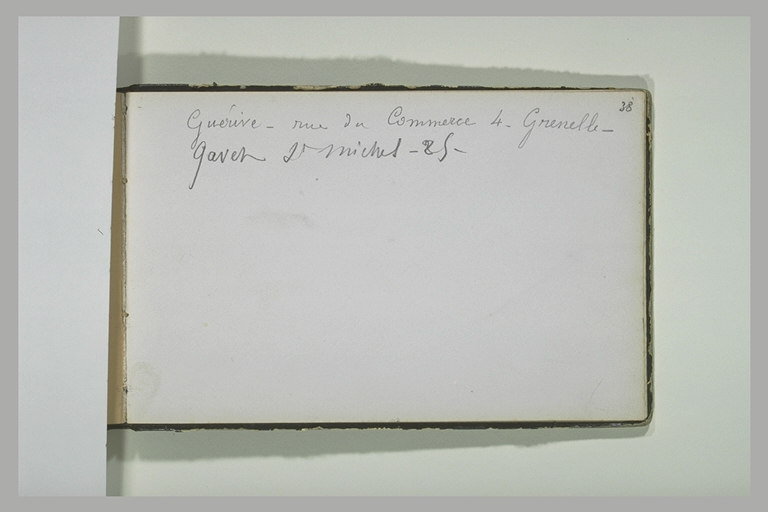 38
Guérive - rue du Commerce 4 - Grenelle -
Gavet St Michel - 25 -